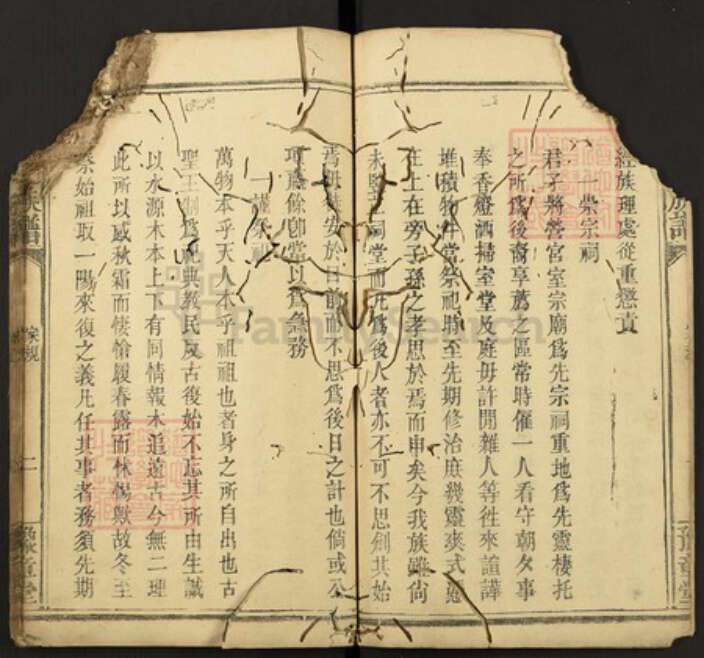 經族理處從重懲責
一崇宗祠
君子將營宮室宗廟爲先宗祠重地爲先靈棲托
之所爲後裔享薦之區常時僱一人看守朝夕事
奉香燈酒掃室堂及庭毋許閒雜人等徃來諠譁
堆積物件當祭祀時至先期修治庶幾靈爽式憑
在上在旁子孫之孝思於焉而申矣今我族雖尙
未豎立祠堂而凡爲後人者亦不可不思創其始
焉毋徒安於目前而不思爲後日之計也倘或公
項贏餘卽當以爲急務
一謹祭祖
萬物本乎天人本乎祖祖也者身之所自出也古
聖王制爲祀典教民反古復始不忘其所由生誠
以水源木本上下有同情報本追遠古今無二理
此所以感秋霜而悽愴履春露而怵惕歟故冬至
祭始祖取一陽來復之義凡任其事者務須先期
族譜
家規
二
豫章堂
FamilySearch